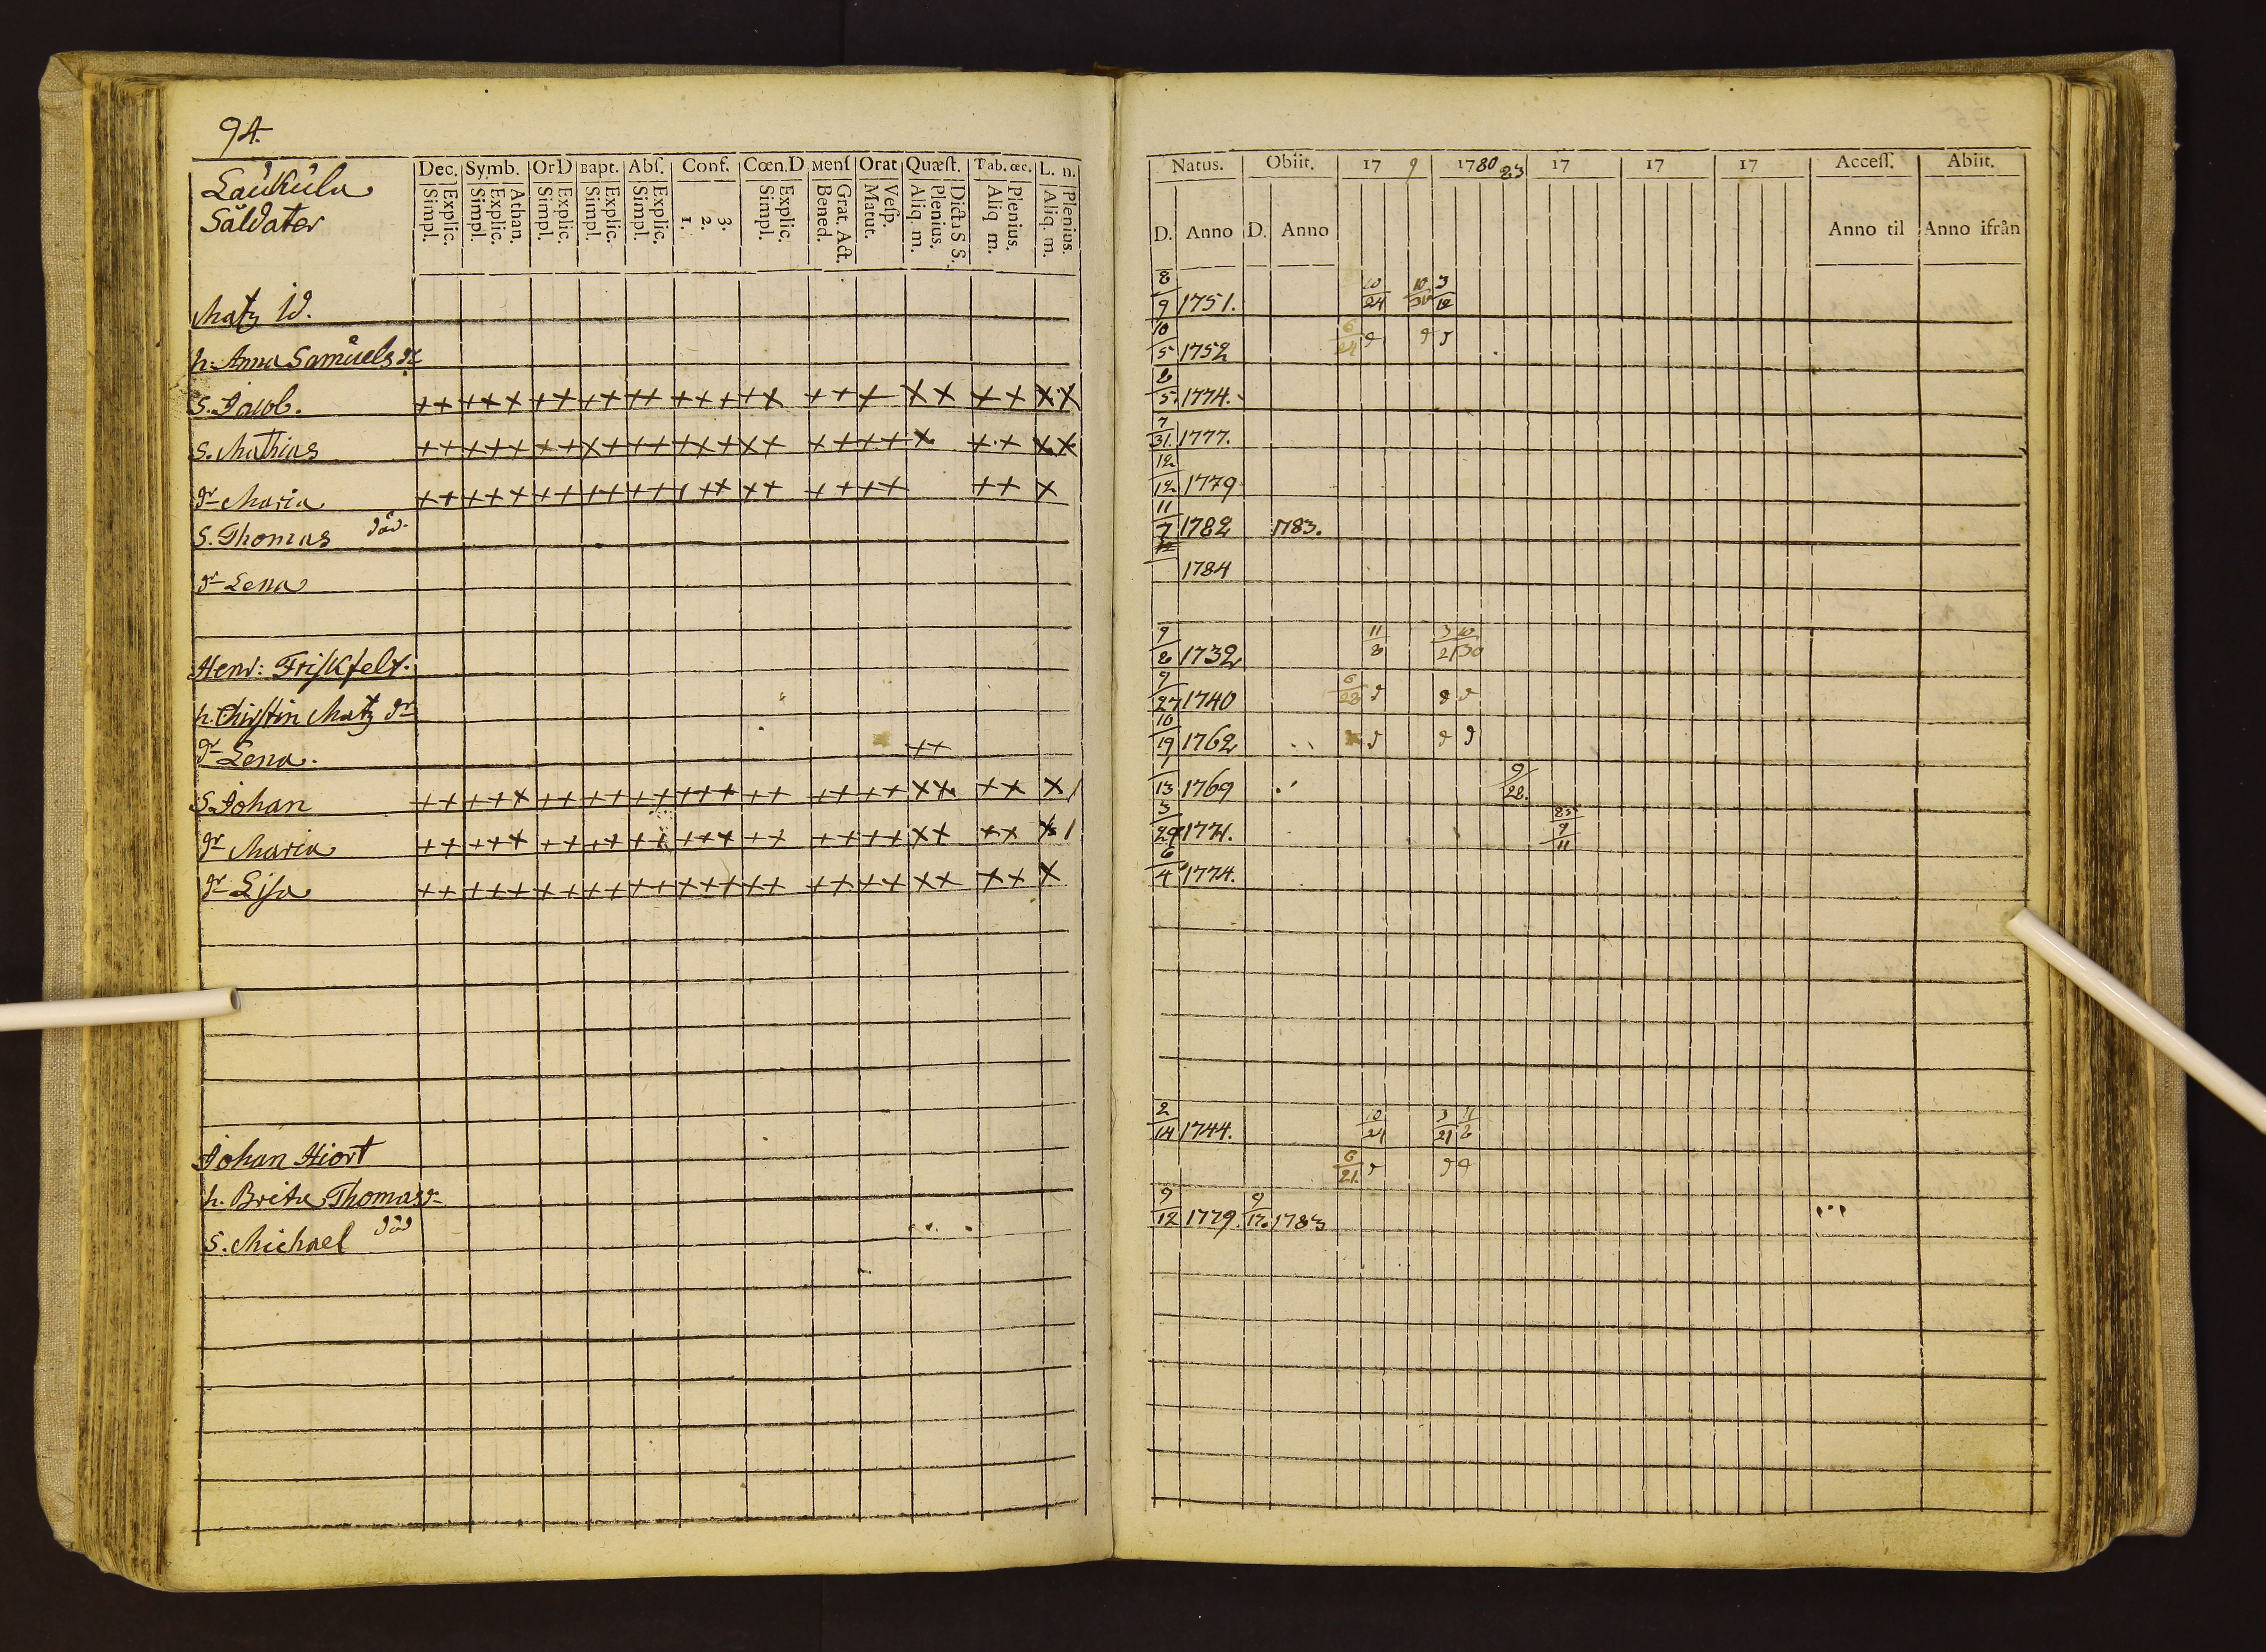 94.
Laukula
Såldater
Dec. Symb. OrD Bapt. Abſ. Conf. Cœn.D Menſ Orat Quæſt. Tab. œc. L. n.
Simpl. Explic. Simpl. Explic. Athan. Simpl. Explic. Simpl. Explic. Simpl. Explic. 1. 2. 3. Simpl. Explic. Bened. Grat. Act. Matut. Veſp. Aliq. m. Plenius. Dicta S S. Aliq m. Plenius. Aliq. m. Plenius.
Matz Id.
h. Anna Samuels dr
S. Jacob. ++ +++ ++ ++ ++ +++ ++ +++ ++ ++ ++
S. Mathias ++ +++ ++ ++ ++ +++ ++ ++++ + ++ ++
dr Maria ++ +++ ++ ++ ++ +++ ++ ++++ ++ +
S. Thomas död.
dr Lena
Henr: Friskfelt.
h. Chirstin Matz dr
dr Lena. ++
S. Johan ++ +++ ++ ++ ++ +++ ++ ++++ ++ ++ + /
dr Maria ++ +++ ++ ++ ++ +++ ++ ++++ ++ ++ + /
dr Lisa ++ +++ ++ ++ ++ +++ ++ ++++ ++ ++ +
Johan Hiort
h. Brita Thomasdr
S. Michael död
Natus. Obiit. 17 9 1780 83 17 17 17 Acceſſ. Abiit.
D. Anno D. Anno Anno til Anno ifrån
8/9 1751. 10/24 10/30 3/12
10/5 1752 6/24 d d d
6/5. 1774.
7/31. 1777.
12/12 1779
11/7 1782 1783.
1784
9/8 1732 11/8 3/21 10/30
9/27 1740 6/28 d d d
10/19 1762 d d d
1/13 1769 9/28.
3/29 1771. 85 9/11
6/4 1774.
2/14 1744. 10/24 3/21 11/6
6/21. d d d
9/12 1779. 9/17. 1783